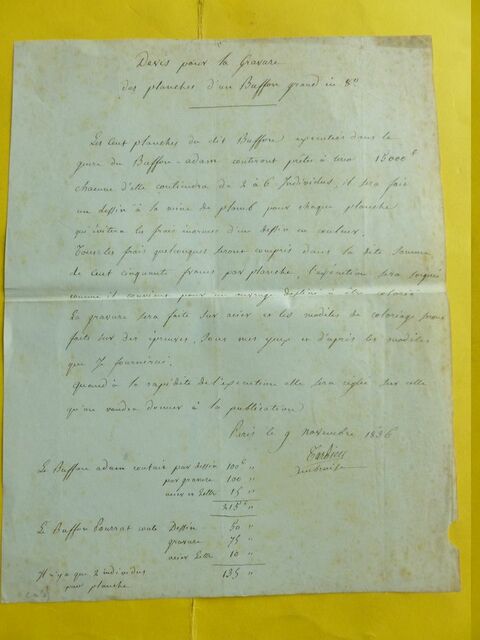 Devis pour la Gravure
des planches d'un Buffon grand in 8º
Les Cent planches du dit Buffon executées dans le
genre du Buffon-adam couteront prêtes à tirer 15000 f
chacune d'elle contiendra de 2 à 6 Individus, il sera fait
un dessin à la mine de plomb pour chaque planche
qui évitera les frais énormes d'un dessin en couleur.
Tous les frais quelconques seront compris dans la dite somme
de Cent cinquante francs par planche, l'exécution sera soignée
comme il convient pour un ouvrage destiné à être colorié
La gravure sera faite sur acier et les modèles de coloriage seront
faits sur des épreuves, sous mes yeux et d'après les modèles
que J. fournirai.
quand à la rapidité de l'execution elle sera réglée sur celle
qu'on voudra donner à la publication
Paris le 9 novembre 1836
Tardieu
ambroise
Le Buffon adam coutait par dessin 100 f "
par gravure 100 "
acier et lettre 15 "
215 f "
Le Buffon Pourrat coute Dessin 50 "
gravure 75 "
acier lettre 10 "
135 "
Il n'y a que 2 individus
par planche